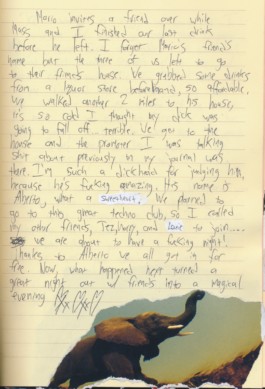 Mario invites a friend over while
Mass and I finished our last drinks
before he left. I forget Mario's friend's
name but the three of us left to go
to their friends house. We grabbed some drinks
from a liquor store beforehand, so affordable.
We walked another 2 miles to his house,
it's so cold I thought my dick was
going to fall off terrible. We got to the
house and the promoter I was talking
shit about previously in my journal was
there. I'm such a dickhead for judging him,
because he's fucking amazing. His name is
Alberto, what a sweetheart. We planned to
go to this great techno club, so I called
my other friends, Tez, and Luke to join....
we are about to have a fucking night!
Thanks to Alberto we all get in for
free. Now, what happened next turned a
great night out w/ friends into a magical
evening